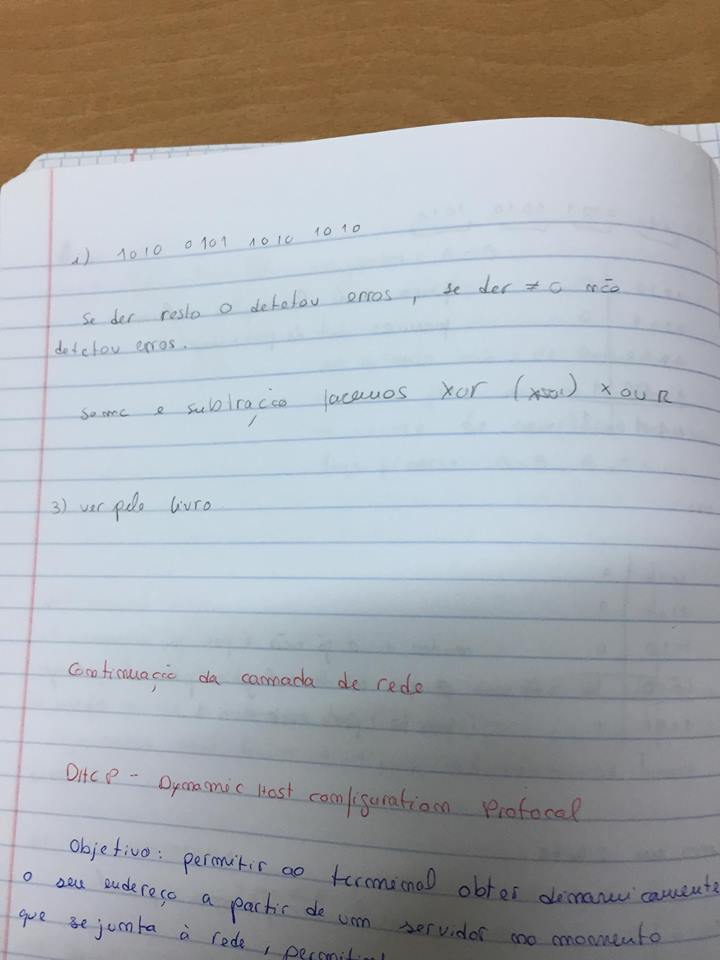 1) 1010 0101 1010 1010
se der resto 0 detetou erros, se der ≠ 0 não
detetou erros.
soma e subtração fazemos xor () x OU R
3) ver pelo livro
Continuação da camada de rede
DHCP - Dynamic Host configuration Protocol
Objetivo: permitir ao terminal obter dinamicamente
o seu endereço a partir de um servidor no momento
que se junta à rede,